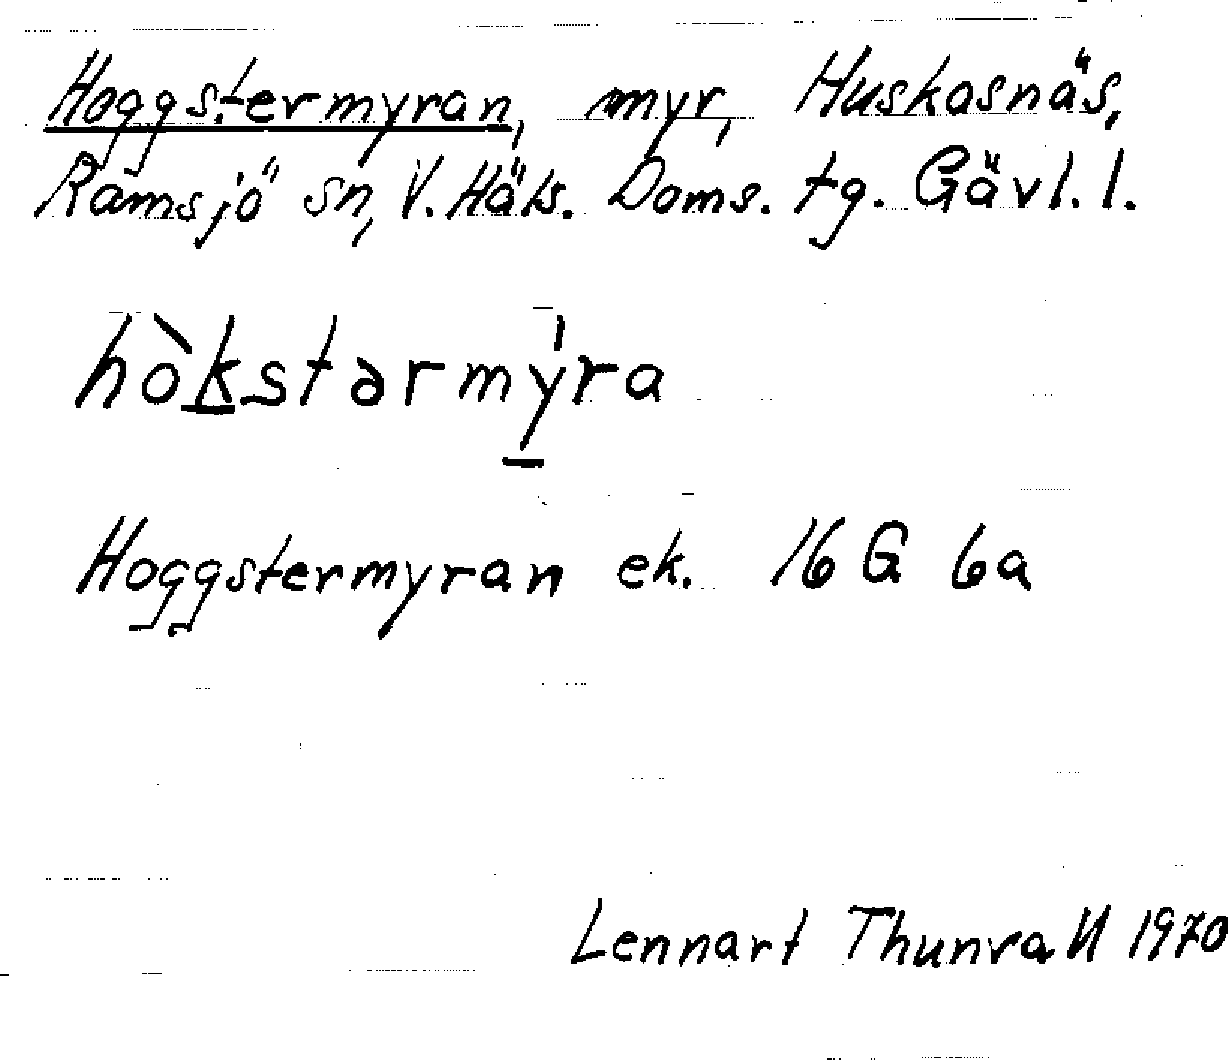 Hoggstermyran, myr, Huskasnäs,
Ramsjö sn, V. Häls. Doms. tg. Gävl. l.
hòkstərmy̍ra
Hoggstermyran ek. 16 G 6a
Lennart Thunvall 1970